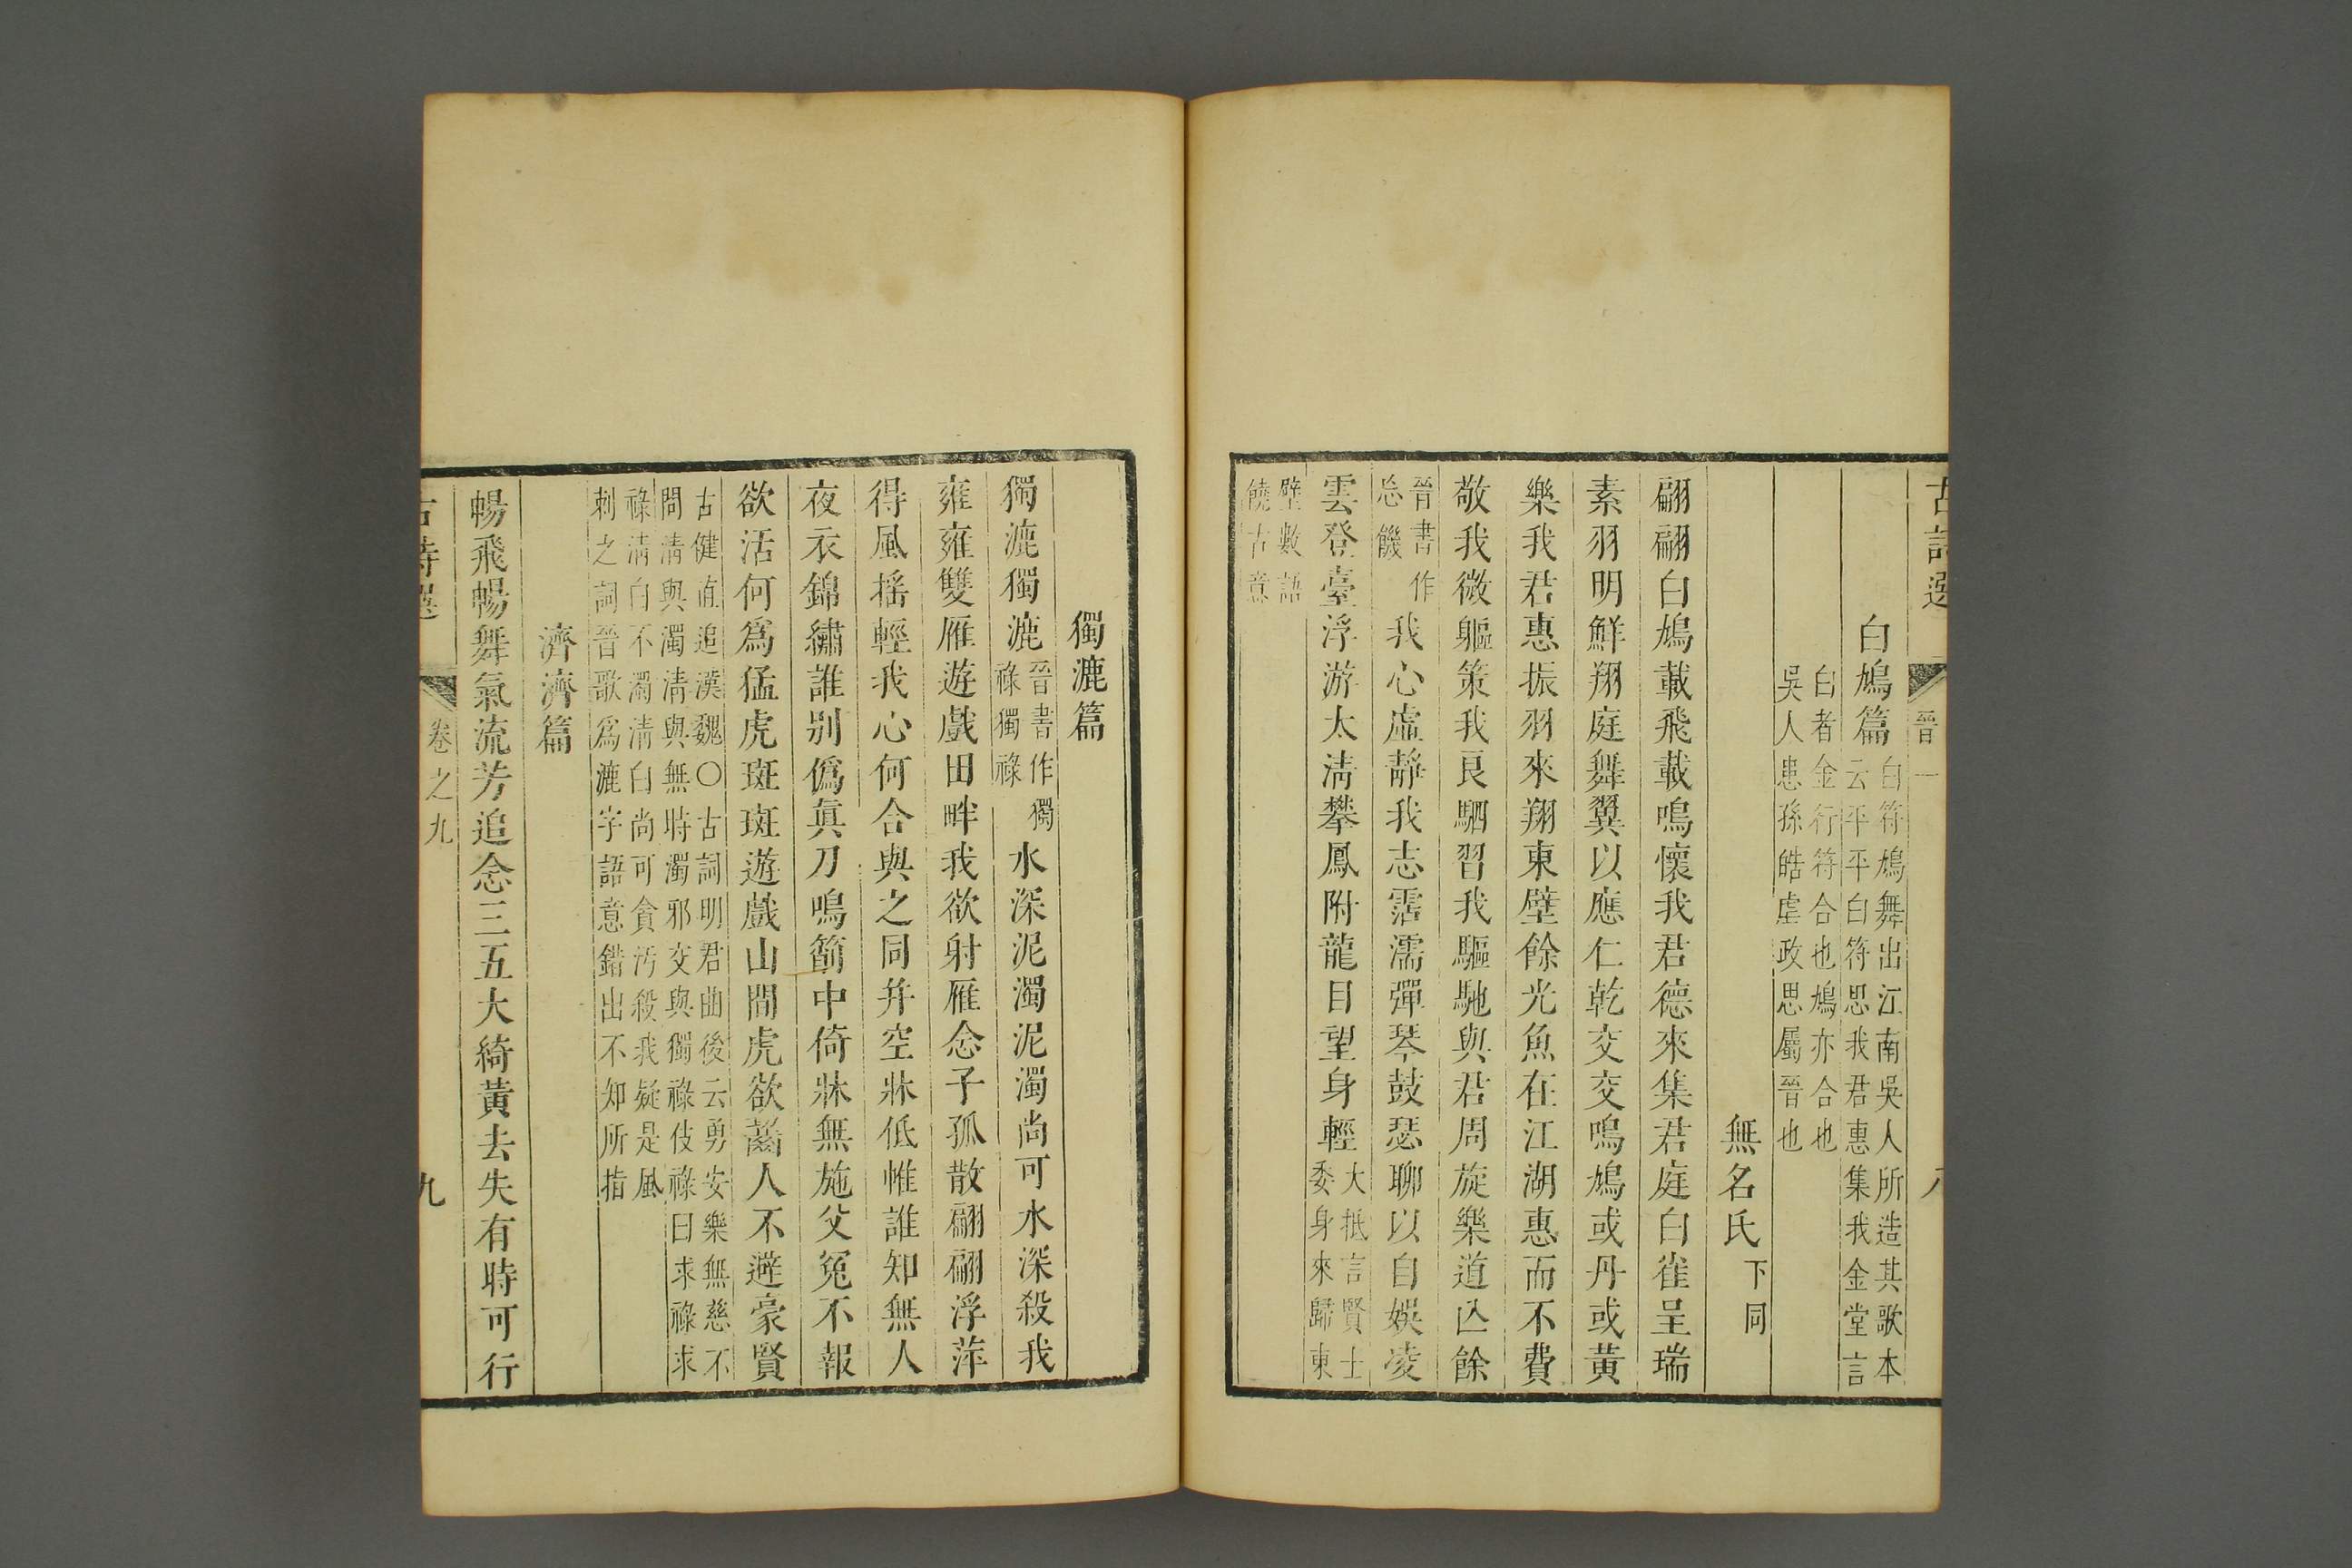 白鳩篇 白符鳩舞出江南吳人所造其歌本云平平白符思我君惠集我金堂言
白者金行符合也鳩亦合也吳人患孫皓虐政思屬晉也
無名氏 下同
翩翩白鳩載飛載鳴懷我君德來集君庭白雀呈瑞
素羽明鮮翔庭舞翼以應仁乾交交鳴鳩或丹或黃
樂我君惠振羽來翔東壁餘光魚在江湖惠而不費
敬我微軀策我良駟習我驅馳與君周旋樂道亾餘
晉書作忘饑 我心虛靜我志霑濡彈琴鼓瑟聊以自娛凌
雲登臺浮游太清攀鳳附龍目望身輕 大抵言賢士委身來歸東
壁數語饒古意
晉一
獨漉篇
獨漉獨漉 晉書作獨祿獨祿 水深泥濁泥濁尚可水深殺我
雍雍雙雁遊戲田畔我欲射雁念子孤散翩翩浮萍
得風搖輕我心何合與之同幷空牀低帷誰知無人
夜衣錦繡誰別僞眞刀鳴箾中倚牀無施父冤不報
欲活何爲猛虎斑斑遊戲山間虎欲齧人不避豪賢
古健直追漢魏〇古詞明君曲後云勇安樂無慈不
問清與濁清與無時濁邪交與獨祿伎祿曰求祿求
祿清白不濁清白尚可貪汚殺我疑是風
刺之詞晉歌爲漉字語意錯出不知所指
濟濟篇
暢飛暢舞氣流芳追念三五大綺黃去失有時可行
古詩選 卷之九 九